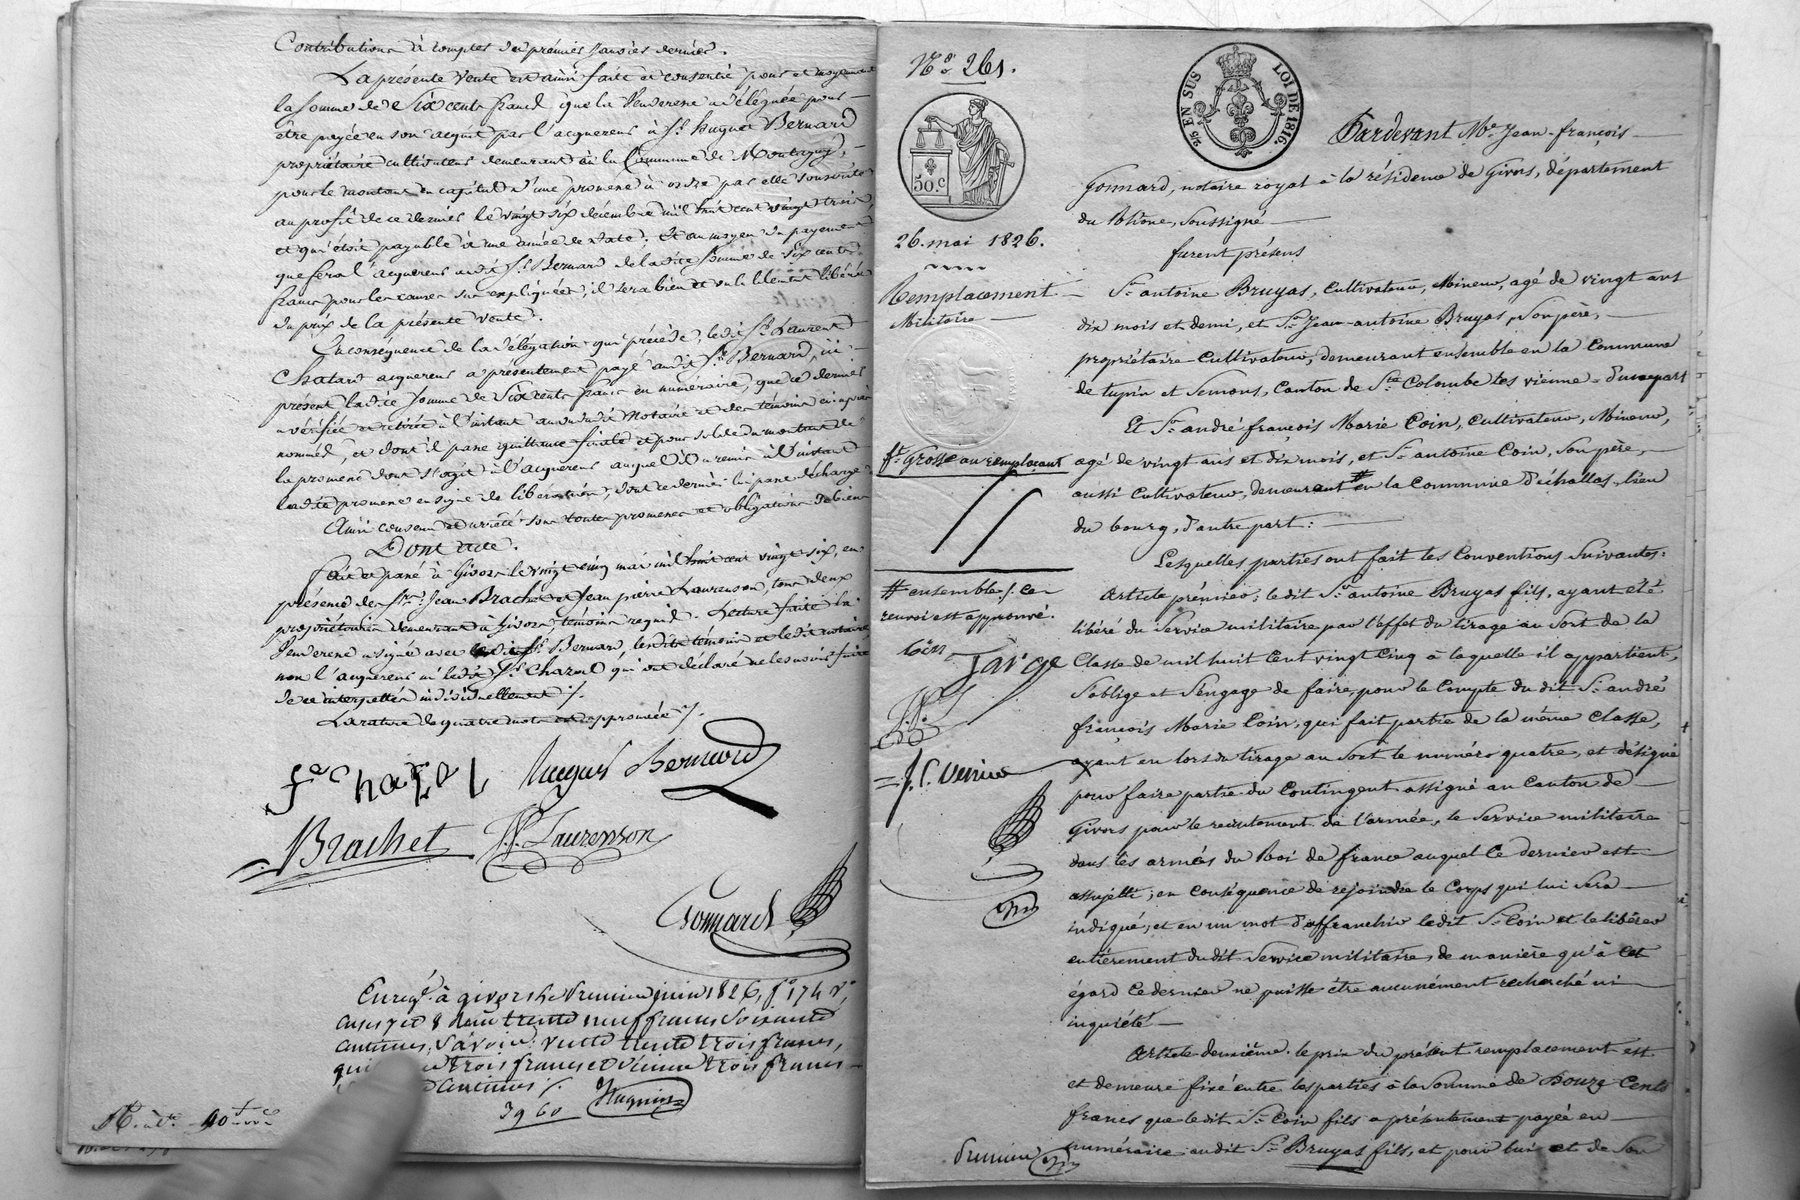 Contributions à comptes du prémier Janvier dernier.
La présente vente est ainsi faite et consentie pour et moyennant
la somme de Six cents francs que la Venderesse a déléguée pour
être payée en son acquit par l'acquereur à Sr. hugues Bernard
propriétaire cultivateur demeurant en la Commune de Montagny,
pour le montant en capital d'une promesse à ordre par elle souscrite
au profit de ce dernier le vingt six décembre mil huit cent vingt trois,
et qui étoit payable à une année de date. Et au moyen du payement
que fera l'acquereur audit Sr. Bernard de la dite somme de six cents
francs pour les causes sus expliquées, il sera bien et valablement libéré
du prix de la présente vente.
En conséquence de la délégation qui précède, ledit Sr. Laurent
Chatard acquereur a présentement payé audit Sr. Bernard, ici
présent ladite somme de Six cents francs en numéraire, que ce dernier
a vérifiée et retirée à l'instant au vu dudit Notaire et des témoins ci-après
nommés, et dont il passe quittance finale et pour solde du montant de
la promesse dont s'agit à l'acquereur auquel il a remis à l'instant
ladite promesse en signe de libération, dont ce dernier lui passe décharge
Ainsi convenu et arrêté sous toutes promesses et obligations de biens
Dont acte.
Fait et passé à Givors le vingt cinq mai mil huit cent vingt six, en
présence de Srs. Jean Brachet et Jean pierre Laurenson, tous deux
propriétaires demeurant à Givors témoins requis. Lecture faite la
Venderesse a signé avec ledit Sr. Bernard, les dits témoins et ledit notaire,
non l'acquereur ni ledit Sr. Chazal qui ont déclaré ne le savoir faire
de ce interpellés individuellement ./.
La rature de quatre mots est approuvée ./.
fe Chazal hugues Bernard
Brachet JP. Laurenson
Gonnard
Enregé. à givors le premier juin 1826, fo. 174 Vo.
cases 7 et 8 Reçu trente neuf francs soixante
centimes, Savoir: vente trente trois francs,
trois francs et dixième trois francs
centimes ./.
39 60 Hugnin
No. 261.
50.c
26. mai 1826.
Remplacement
Militaire
ft. grosse au remplaçant
# ensemble ./. Ce
renvoi est approuvé.
Coin Farge
J.P.L
J. C. Verrier
2/5 EN SUS LOI DE 1816.
Pardevant Me. Jean-françois
Gonnard, notaire royal à la résidence de Givors, département
du Rhône, Soussigné
furent présens
Sr. antoine Bruyas, Cultivateur, Mineur, agé de vingt ans
dix mois et demi, et Sr. Jean-antoine Bruyas, Son père,
propriétaire-Cultivateur, demeurant ensemble en la Commune
de tupin et Semons, Canton de Ste. Colombe les vienne = d'une part
Et Sr. andré françois Marie Coin, Cultivateur, Mineur,
agé de vingt ans et dix mois, et Sr. antoine Coin, Son père,
aussi Cultivateur, demeurant # en la Commune d'échallas, lieu
du bourg, d'autre part:
Lesquelles parties ont fait les Conventions Suivantes:
Article prémier: le dit Sr. antoine Bruyas fils, ayant été
libéré du Service militaire par l'effet du tirage au Sort de la
Classe de mil huit Cent vingt Cinq à laquelle il appartient,
S'oblige et S'engage de faire, pour le Compte du dit Sr. andré
françois Marie Coin, qui fait partie de la même Classe,
ayant eu lors du tirage au Sort le numéro quatre, et désigné
pour faire partie du Contingent assigné au Canton de
Givors pour le recrutement de l'armée, le Service militaire
dans les armées du Roi de france auquel Ce dernier est
assujetti; en Conséquence de rejoindre le Corps qui lui Sera
indiqué, et en un mot d'affranchir ledit Sr. Coin et le libérer
entièrement dudit Service militaire, de manière qu'à Cet
égard Ce dernier ne puisse être aucunément recherché ni
inquiété
Article deuxième: le prix du présent remplacement est
et demeure fixé entre les parties à la Somme de Douze Cents
francs que ledit Sr. Coin fils a présentement payée en
numéraire audit Sr. Bruyas fils, et pour lui et de Son